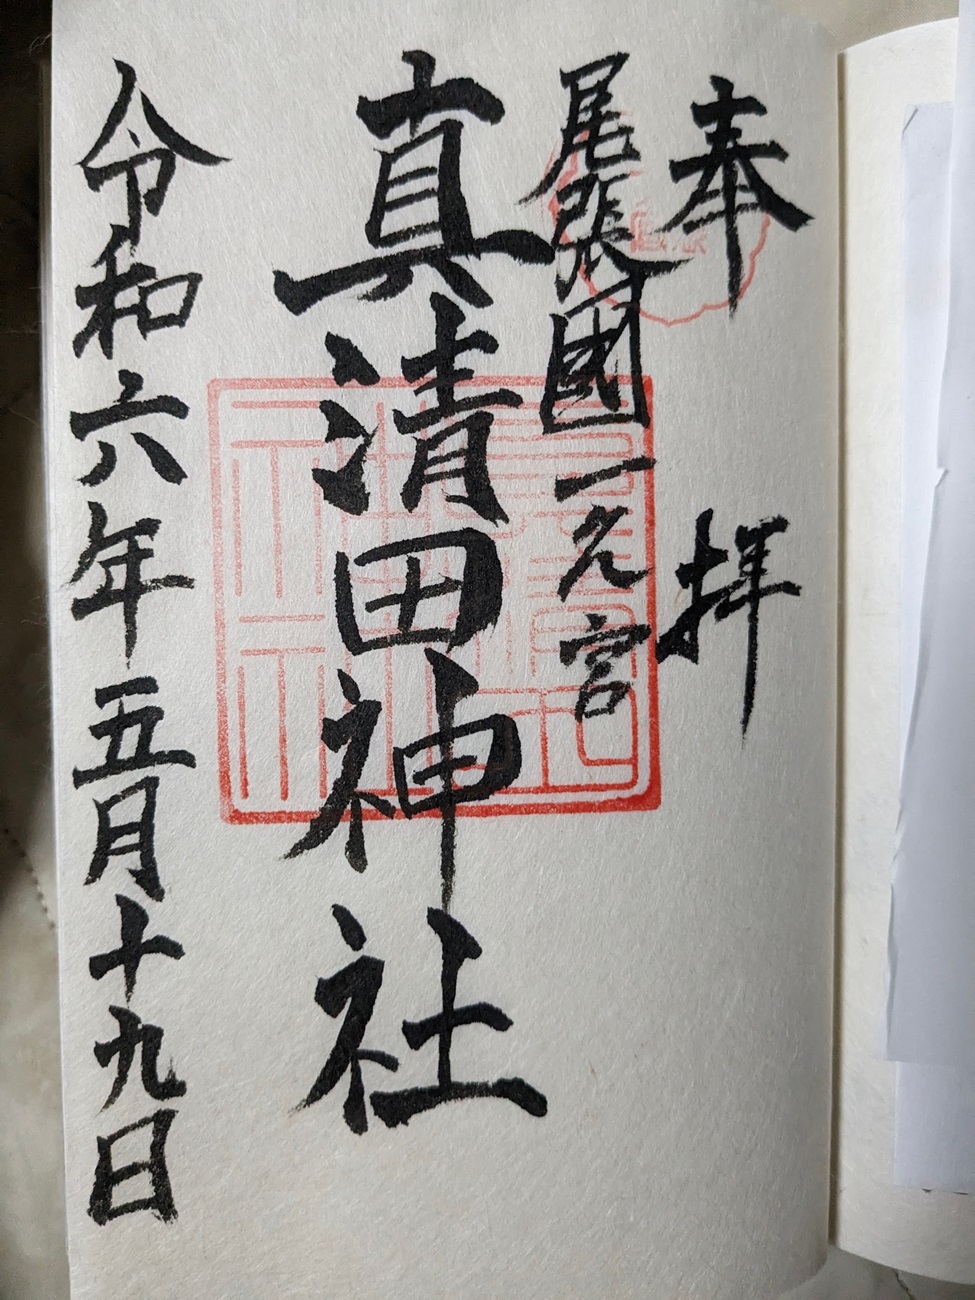 奉拝
尾張國一之宮
真清田神社
令和六年五月十九日